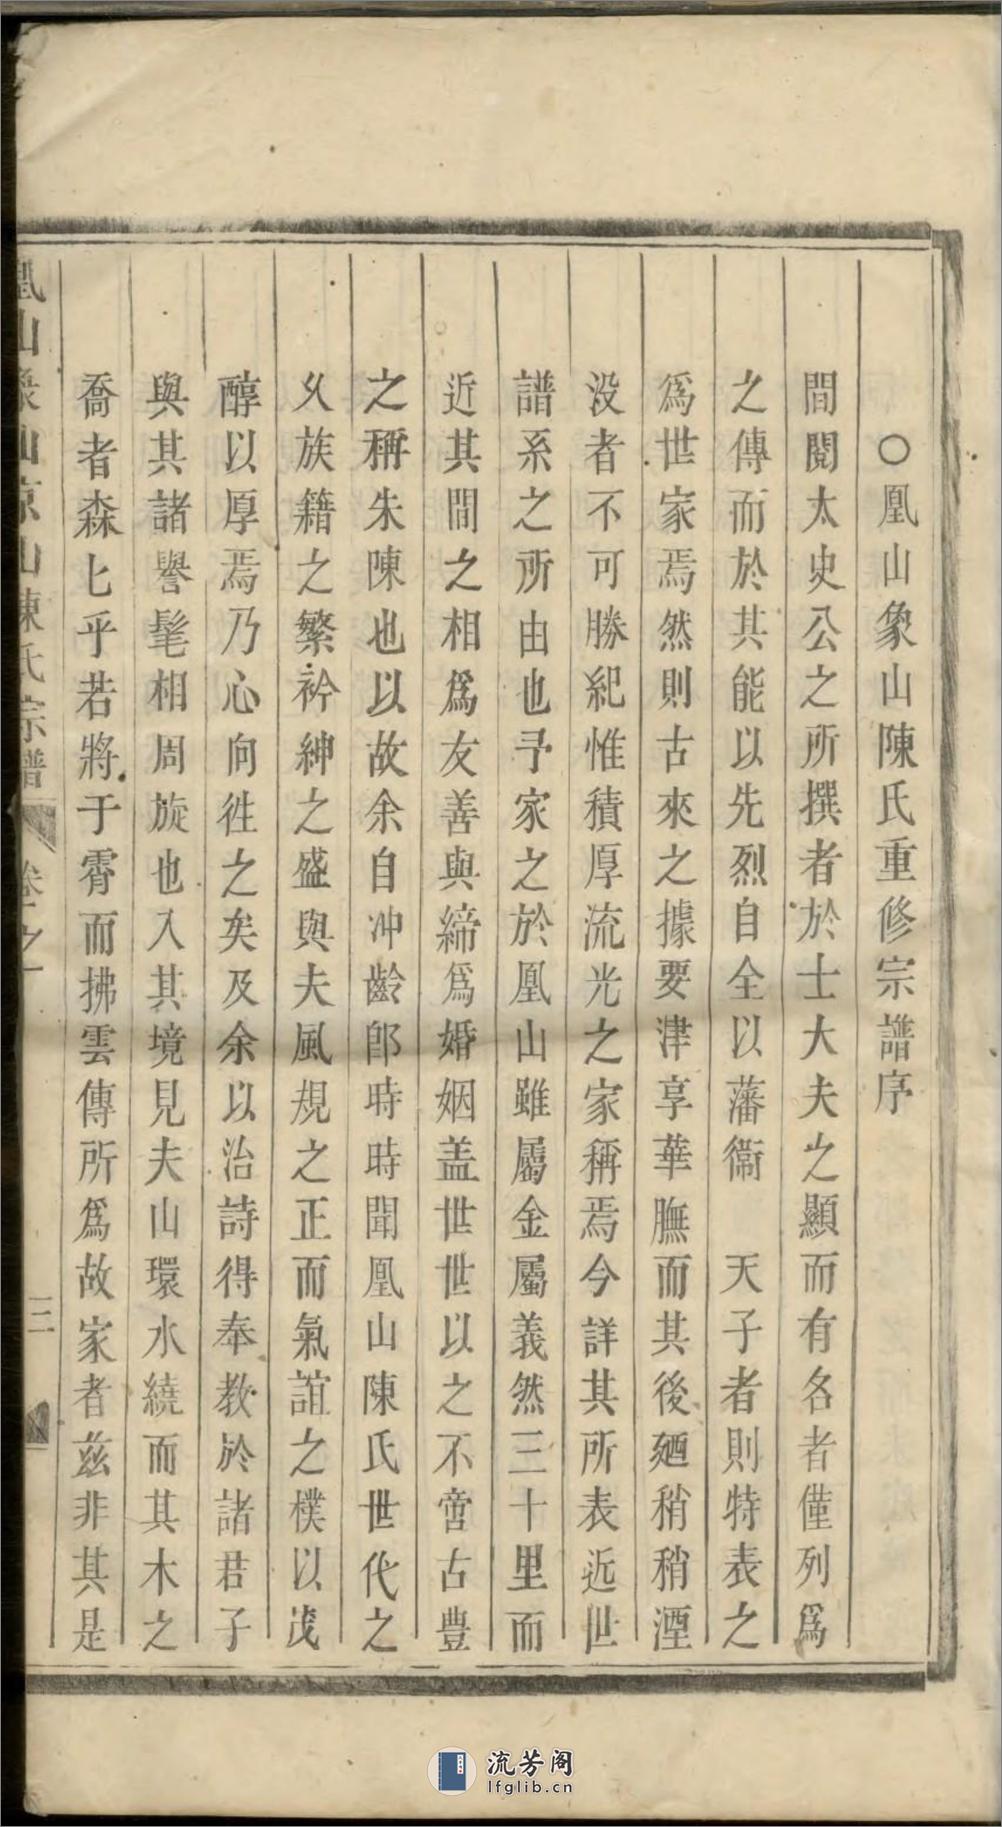 ○凰山象山陳氏重修宗譜序
間閱太史公之所撰者於士大夫之顯而有名者僅列爲
之傳而於其能以先烈自全以藩衞　天子者則特表之
爲世家焉然則古來之據要津享華膴而其後廼稍稍湮
没者不可勝紀惟積厚流光之家稱焉今詳其所表近世
譜系之所由也予家之於凰山雖屬金屬義然三十里而
近其間之相爲友善與締爲婚姻盖世世以之不啻古豊
之稱朱陳也以故余自冲齡卽時時聞凰山陳氏世代之
乆族籍之繁衿紳之盛與夫風規之正而氣誼之樸以茂
醇以厚焉乃心向徃之矣及余以治詩得奉教於諸君子
與其諸譽髦相周旋也入其境見夫山環水繞而其木之
喬者森匕乎若將于霄而拂雲傳所爲故家者兹非其是
凰山象山凉山陳氏宗譜　卷之一　三
流芳阁
lfglib.cn